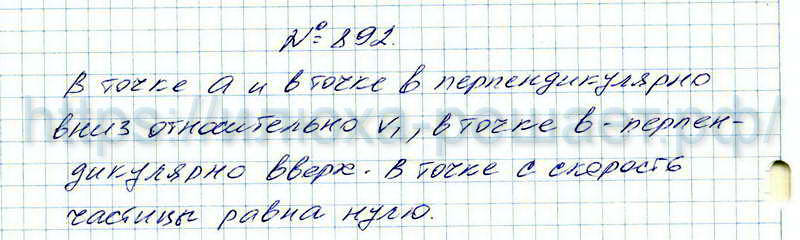 № 892.
В точке а и в точке в перпендикулярно
вниз относительно V₁, в точке в - перпен-
дикулярно вверх. В точке с скорость
частицы равна нулю.